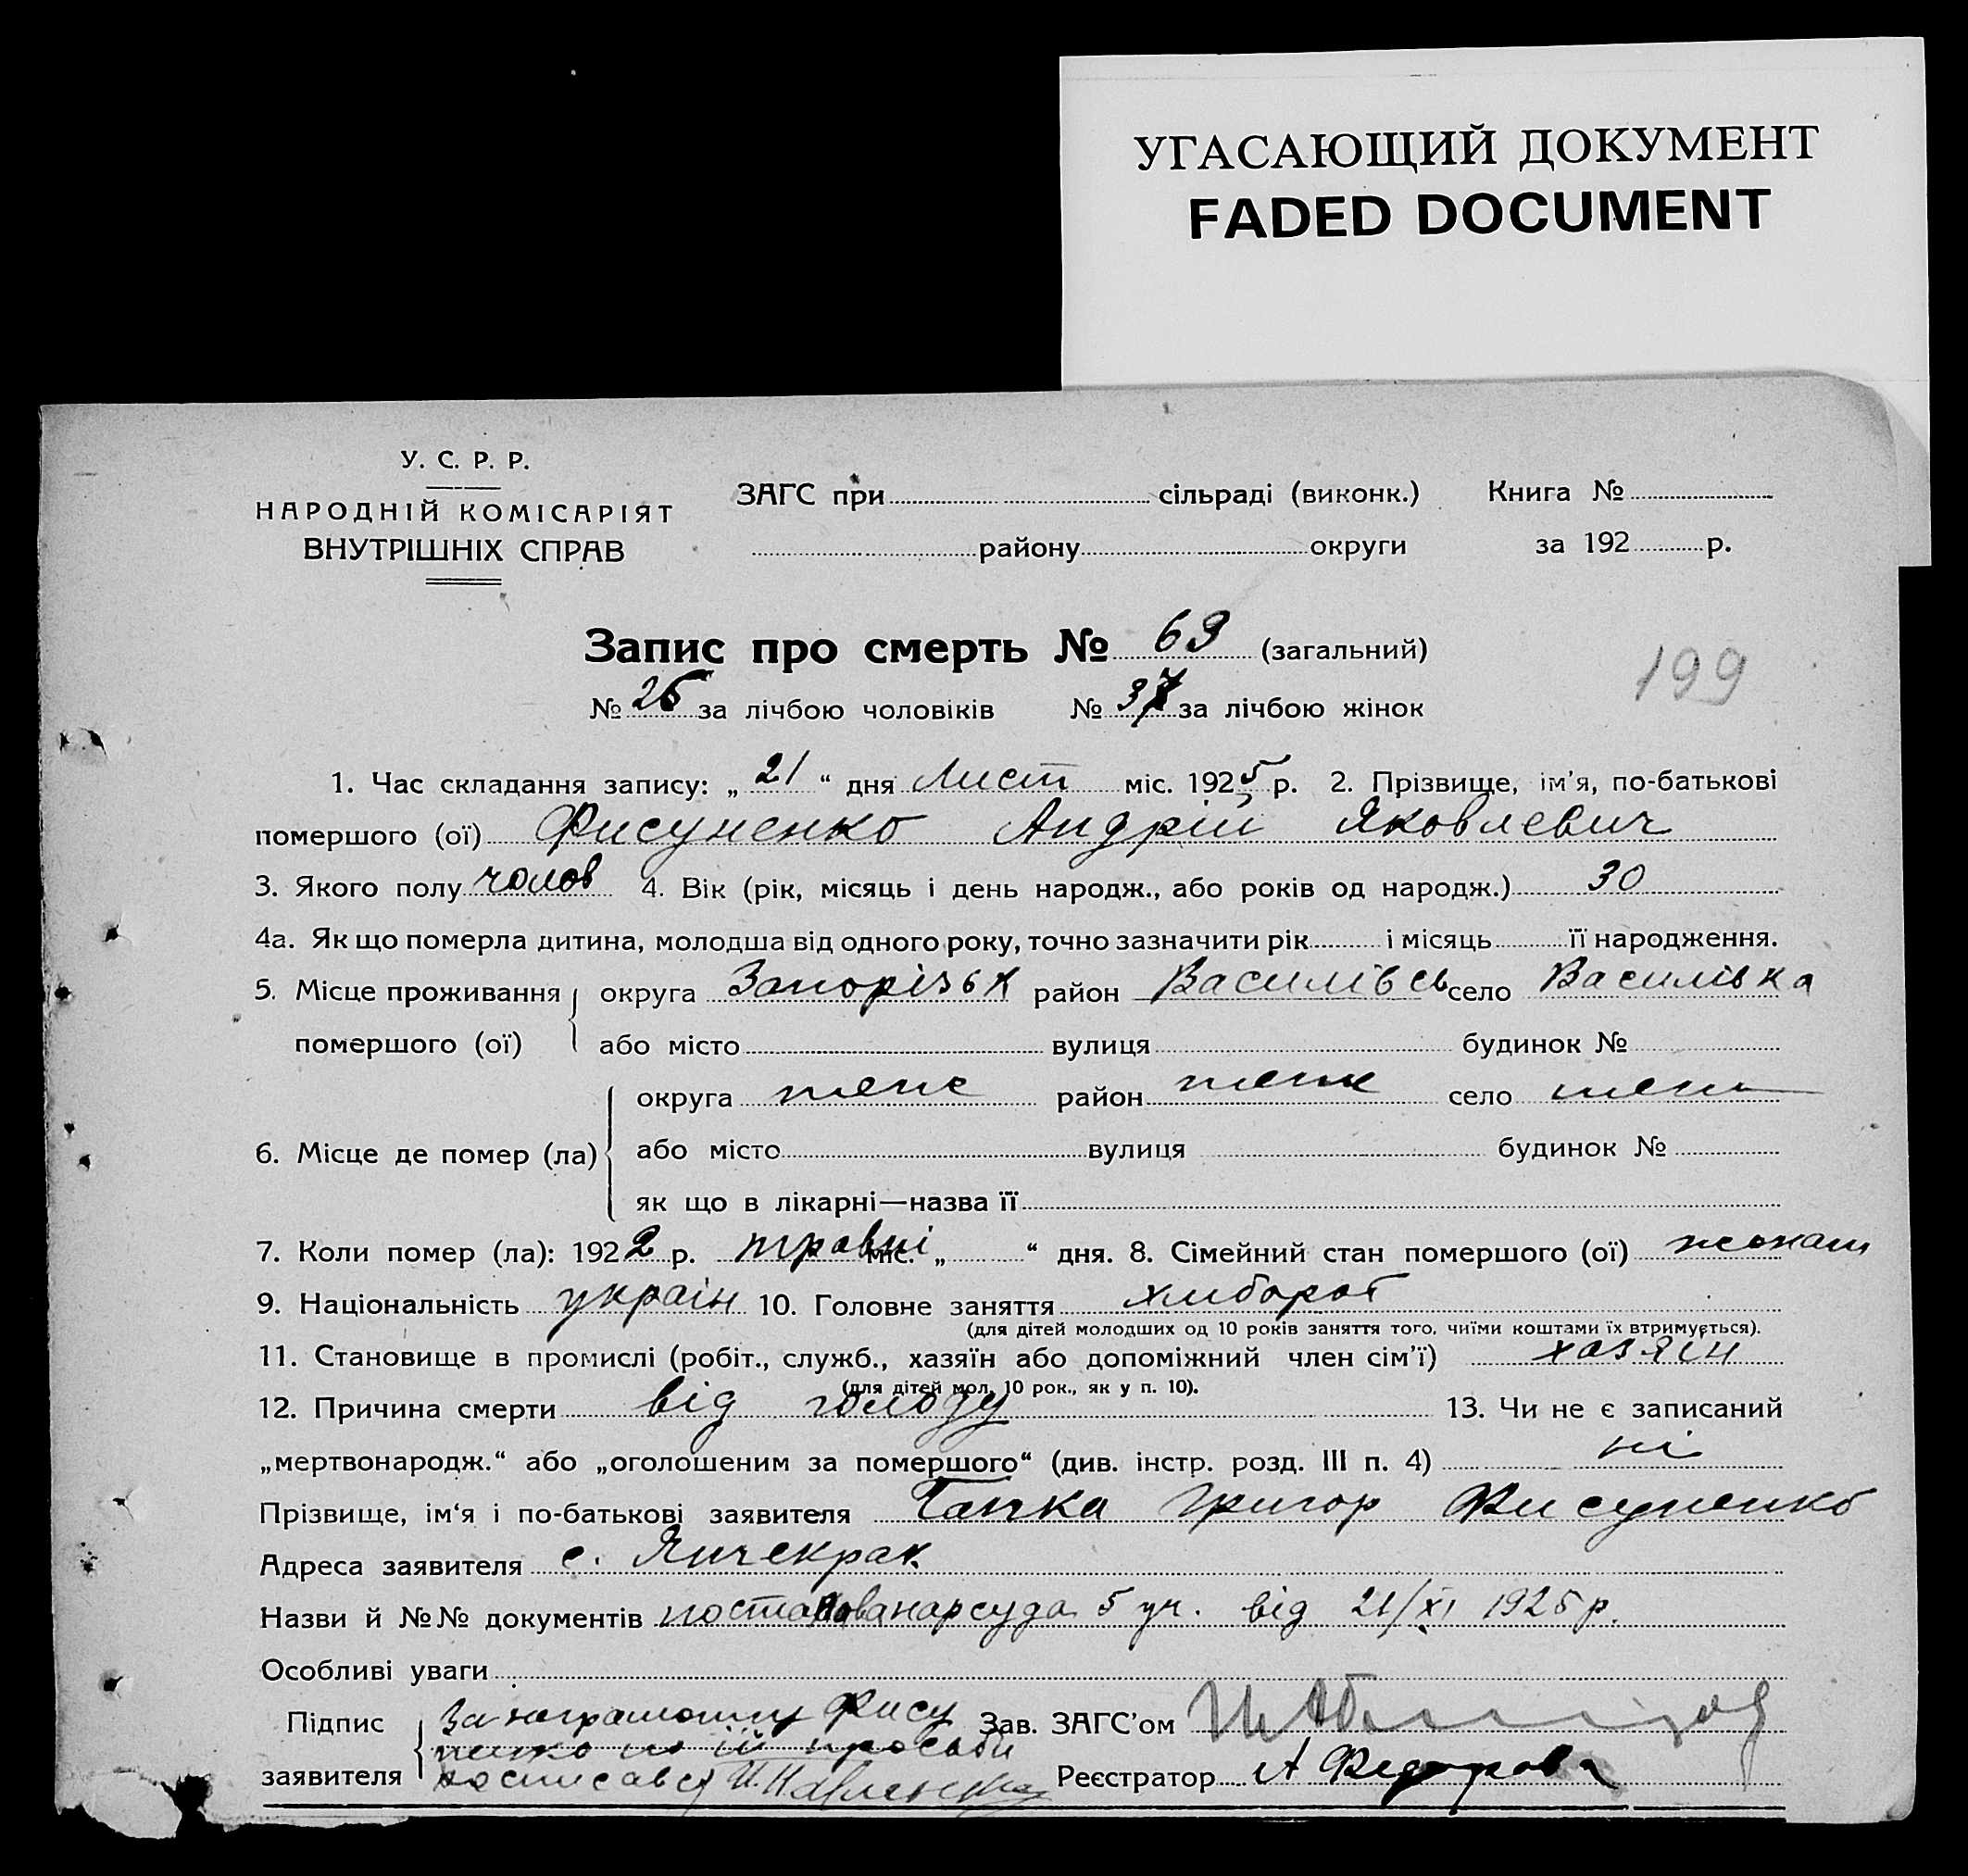 УГАСАЮЩИЙ ДОКУМЕНТ
FADED DOCUMENT
У. С. Р. Р.
НАРОДНІЙ КОМІСАРІЯТ
ВНУТРІШНІХ СПРАВ
ЗАГС при сільраді (виконк.) Книга №
району округи за 192 р.
Запис про смерть № 69 (загальний)
199
№ 26 за лічбою чоловіків № 37 за лічбою жінок
1. Час складання запису: „ 21 “ дня Лист міс. 1925 р. 2. Прізвище, ім'я, по-батькові
помершого (ої) Фисуненко Андрій Яковлевич
3. Якого полу чолов 4. Вік (рік, місяць і день народж., або років од народж.) 30
4а. Як що померла дитина, молодша від одного року, точно зазначити рік і місяць її народження.
5. Місце проживання округа Запорізьк район Василівсь село Василівка
помершого (ої) або місто вулиця будинок №
округа теж район теж село теж
6. Місце де помер (ла) або місто вулиця будинок №
як що в лікарні—назва її
7. Коли помер (ла): 1922 р. травні міс. „ “ дня. 8. Сімейний стан помершого (ої) жонат
9. Національність україн 10. Головне заняття хлібороб
(для дітей молодших од 10 років заняття того, чиїми коштами їх втримується).
11. Становище в промислі (робіт., служб., хазяїн або допоміжний член сім'ї) хазяїн
(для дітей мол. 10 рок., як у п. 10).
12. Причина смерти від голоду 13. Чи не є записаний
„мертвонародж.“ або „оголошеним за помершого“ (див. інстр. розд. III п. 4) ні
Прізвище, ім'я і по-батькові заявителя Ганка Григор Фисуненко
Адреса заявителя с. Янчекрак
Назви й №№ документів постанова нарсуда 5 уч. від 21/XI 1925 р.
Особливі уваги
Підпис За неграмотну Фису Зав. ЗАГС'ом
ненко по її просьбі
заявителя росписавсь Павленко Реєстратор А Федорова